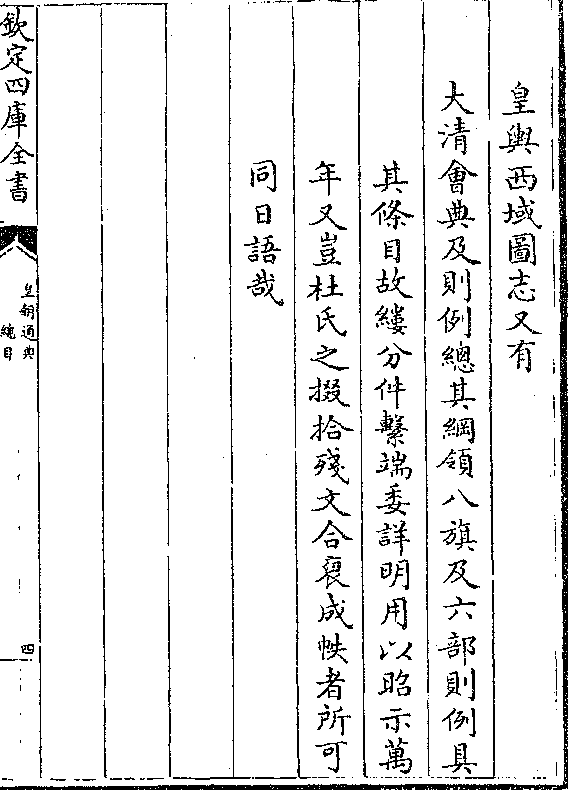 皇輿西域圖志又有
大清會典及則例總其綱領八旗及六部則例具
其條目故縷分件繫端委詳明用以昭示萬
年又豈杜氏之掇拾殘文合裒成帙者所可
同日語哉
欽定四庫全書
皇朝通典
總目
四